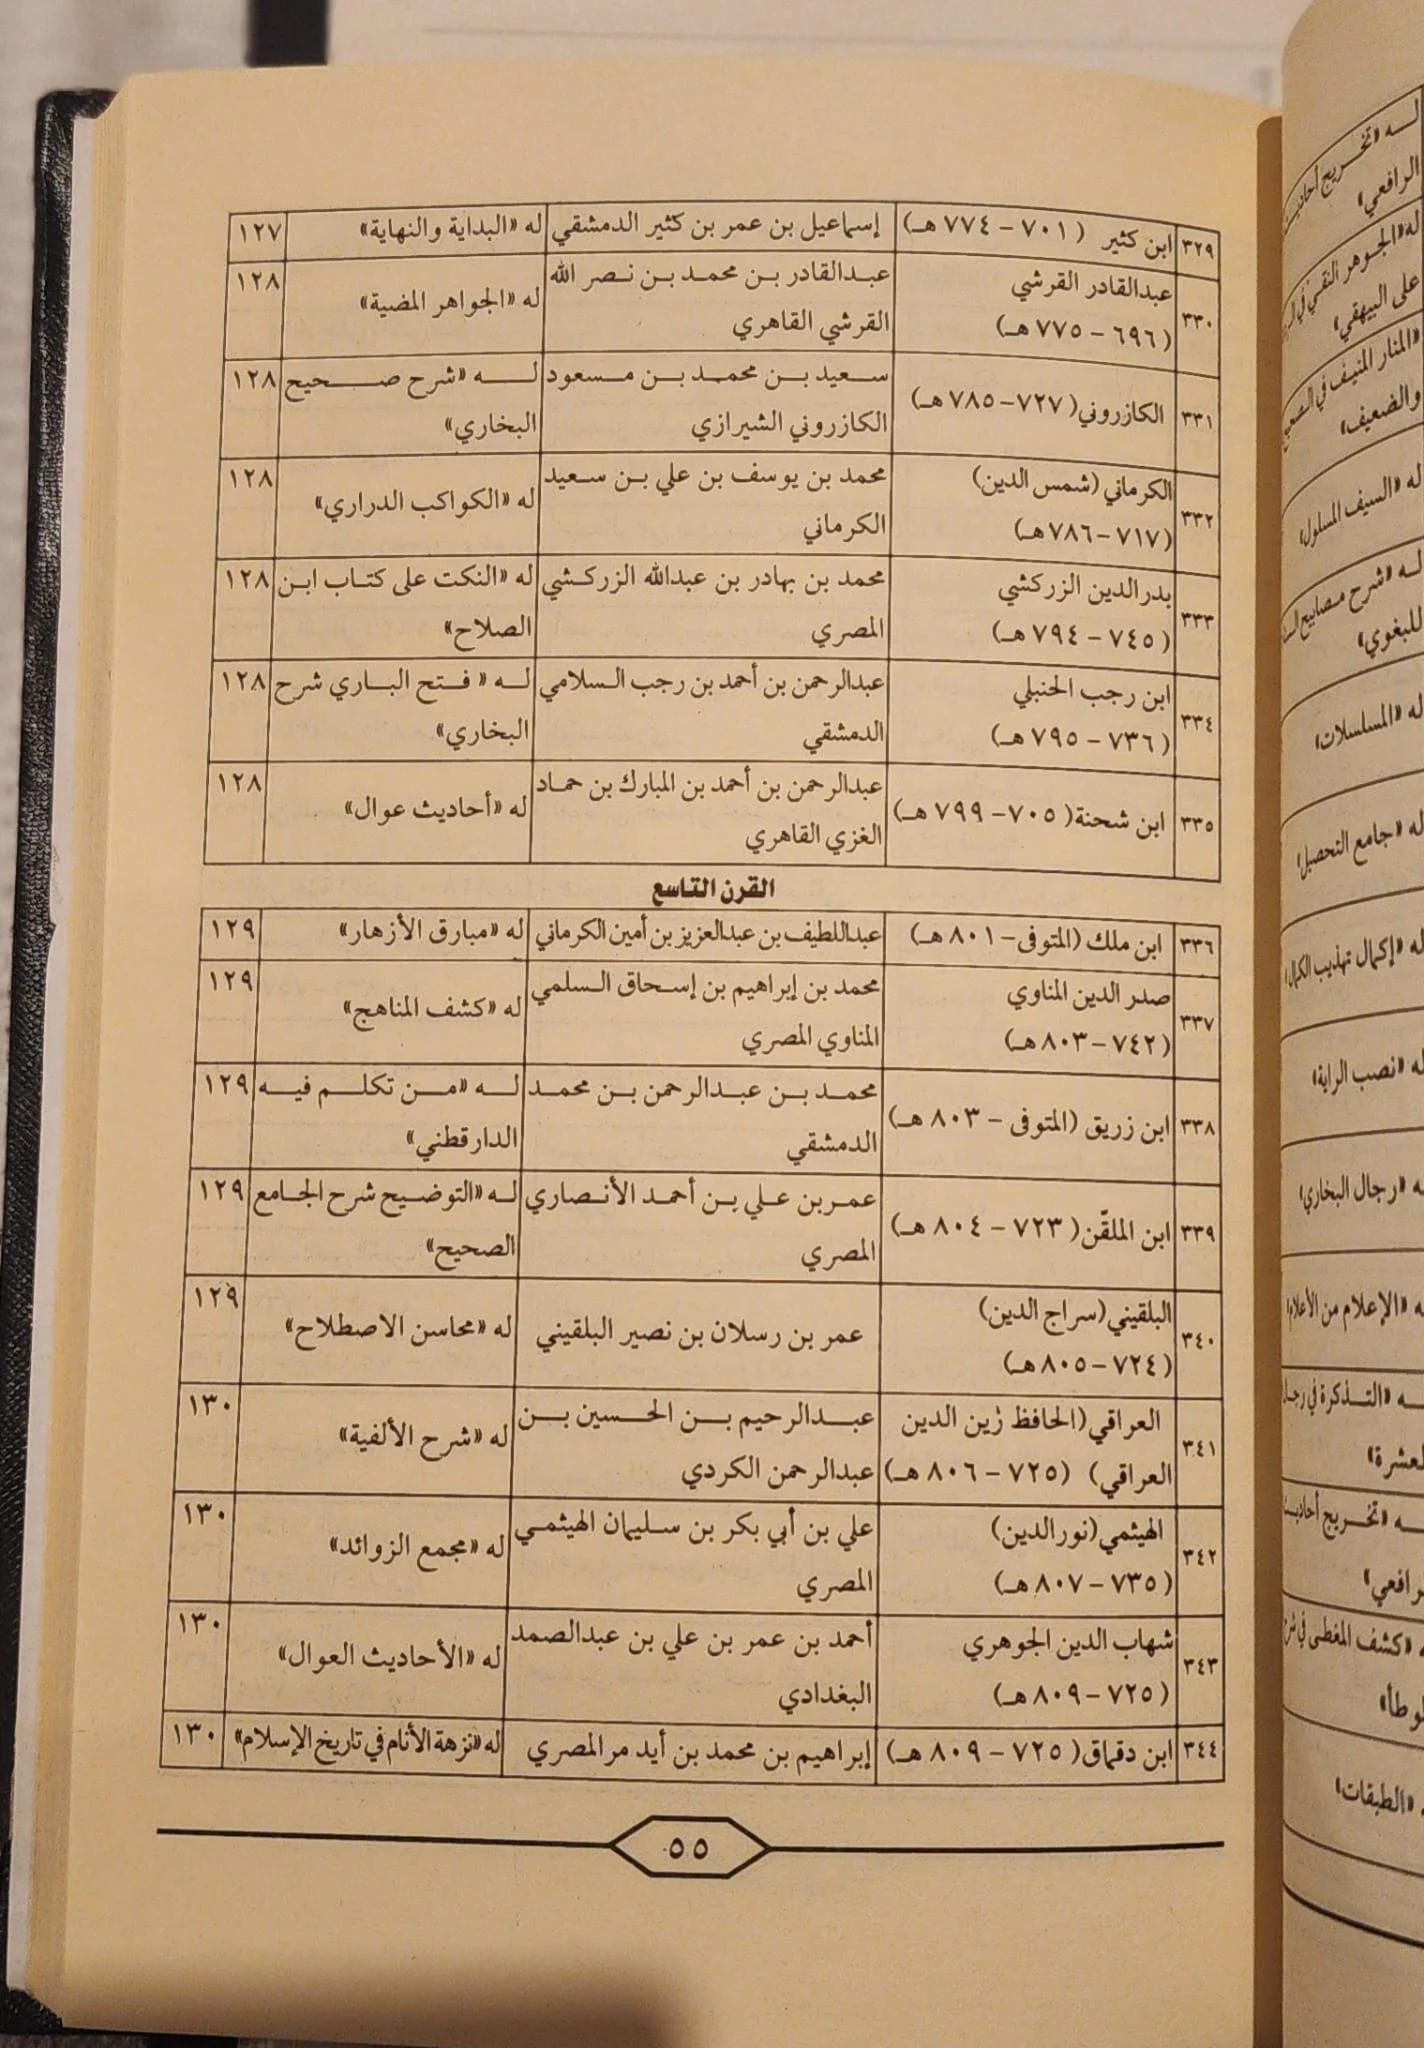 ٣٢٩ ابن كثير (٧٠١ - ٧٧٤ هـ) إسماعيل بن عمر بن كثير الدمشقي له «البداية والنهاية» ١٢٧
٣٣٠ عبدالقادر القرشي (٦٩٦ - ٧٧٥ هـ) عبدالقادر بن محمد بن نصر الله القرشي القاهري له «الجواهر المضية» ١٢٨
٣٣١ الكازروني (٧٢٧ - ٧٨٥ هـ) سعيد بن محمد بن مسعود الكازروني الشيرازي له «شرح صحيح البخاري» ١٢٨
٣٣٢ الكرماني (شمس الدين) (٧١٧ - ٧٨٦ هـ) محمد بن يوسف بن علي بن سعيد الكرماني له «الكواكب الدراري» ١٢٨
٣٣٣ بدر الدين الزركشي (٧٤٥ - ٧٩٤ هـ) محمد بن بهادر بن عبدالله الزركشي المصري له «النكت على كتاب ابن الصلاح» ١٢٨
٣٣٤ ابن رجب الحنبلي (٧٣٦ - ٧٩٥ هـ) عبدالرحمن بن أحمد بن رجب السلامي الدمشقي له « فتح الباري شرح البخاري» ١٢٨
٣٣٥ ابن شحنة (٧٠٥ - ٧٩٩ هـ) عبدالرحمن بن أحمد بن المبارك بن حماد الغزي القاهري له «أحاديث عوال» ١٢٨
القرن التاسع
٣٣٦ ابن ملك (المتوفى - ٨٠١ هـ) عبداللطيف بن عبدالعزيز بن أمين الكرماني له «مبارق الأزهار» ١٢٩
٣٣٧ صدر الدين المناوي (٧٤٢ - ٨٠٣ هـ) محمد بن إبراهيم بن إسحاق السلمي المناوي المصري له «كشف المناهج» ١٢٩
٣٣٨ ابن زريق (المتوفى - ٨٠٣ هـ) محمد بن عبدالرحمن بن محمد الدمشقي له «من تكلم فيه الدارقطني» ١٢٩
٣٣٩ ابن الملقّن (٧٢٣ - ٨٠٤ هـ) عمر بن علي بن أحمد الأنصاري المصري له «التوضيح شرح الجامع الصحيح» ١٢٩
٣٤٠ البلقيني (سراج الدين) (٧٢٤ - ٨٠٥ هـ) عمر بن رسلان بن نصير البلقيني له «محاسن الاصطلاح» ١٢٩
٣٤١ العراقي (الحافظ زين الدين العراقي) (٧٢٥ - ٨٠٦ هـ) عبدالرحيم بن الحسين بن عبدالرحمن الكردي له «شرح الألفية» ١٣٠
٣٤٢ الهيثمي (نور الدين) (٧٣٥ - ٨٠٧ هـ) علي بن أبي بكر بن سليمان الهيثمي المصري له «مجمع الزوائد» ١٣٠
٣٤٣ شهاب الدين الجوهري (٧٢٥ - ٨٠٩ هـ) أحمد بن عمر بن علي بن عبدالصمد البغدادي له «الأحاديث العوال» ١٣٠
٣٤٤ ابن دقماق (٧٢٥ - ٨٠٩ هـ) إبراهيم بن محمد بن أيدمر المصري له «نزهة الأنام في تاريخ الإسلام» ١٣٠
٥٥
له «تخريج أحاديث
الرافعي»
له «الجوهر النقي في
على البيهقي»
«المنار المنيف في الصحيح
والضعيف»
له «السيف المسلول»
له «شرح مصابيح
للبغوي»
له «المسلسلات»
له «جامع التحصيل»
له «إكمال تهذيب الكمال»
له «نصب الراية»
«رجال البخاري»
«الإعلام من الأعلام»
«التذكرة في رجال
العشرة»
«تخريج أحاديث
«كشف المغطى في
«الطبقات»